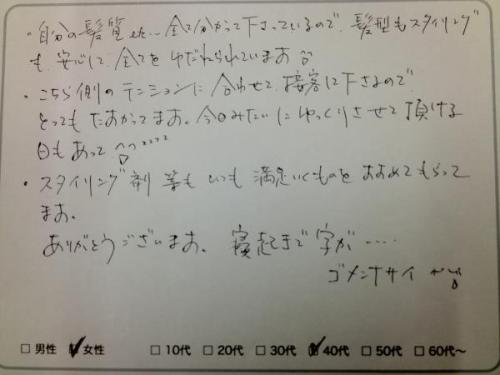 ・自分の髪質etc…全て分かって下さっているので、髪型もスタイリング
も、安心して、全てをゆだねられています
・こちら側のテンションに合わせて、接客して下さるので
とってもたすかってます。今日みたいにゆっくりさせて頂ける
日もあって
・スタイリング剤等もいつも満足いくものをおすすめてもらって
ます。
ありがとうございます。寝起きで字が……
ゴメンナサイ
□男性 □女性 □10代 □20代 □30代 □40代 □50代 □60代~